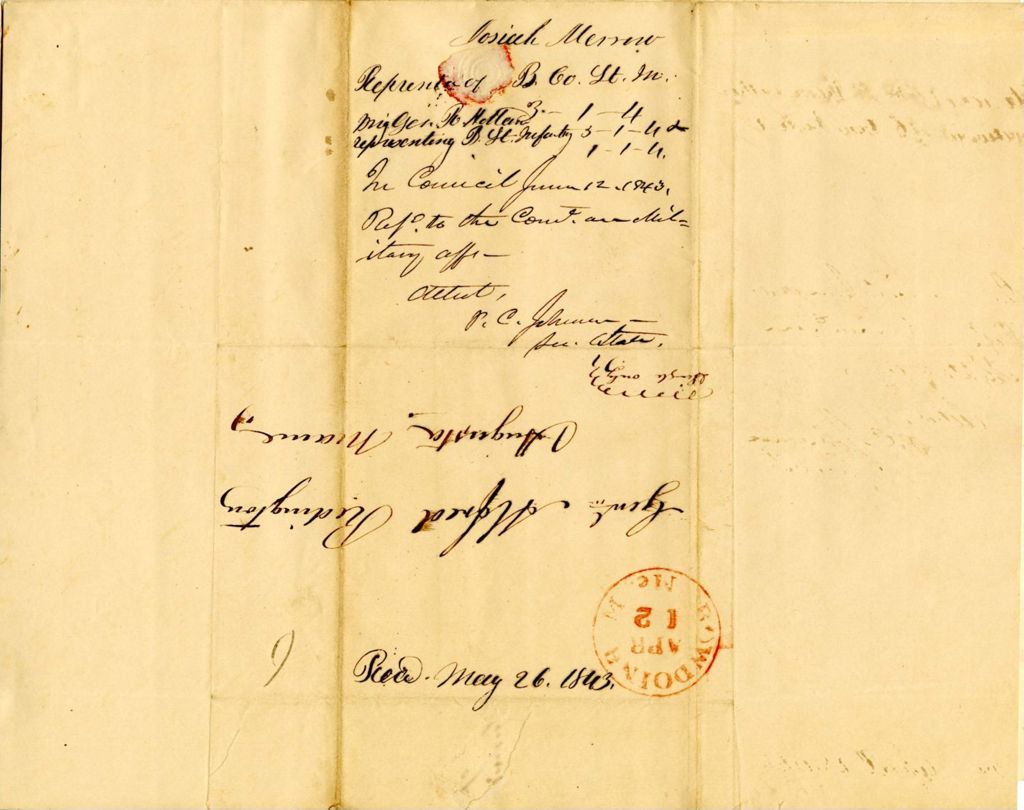 Josiah Merrow
Represents of B. Co. Lt. In.
Brig Gen. R 3 - 1 - 4
representing B. Lt. Infantry 3 - 1 - 4 &
1 - 1 - 4.
In Council June 12. 1843.
Refd. to the Comt. on Mil=
itary affs -
Attest,
P. C. Johnson -
Sec. State.
Single only
Augusta Maine
Genl. Alfred Redington
BOWDOINHM
Me.
APR
12
Recd. May 26. 1843.